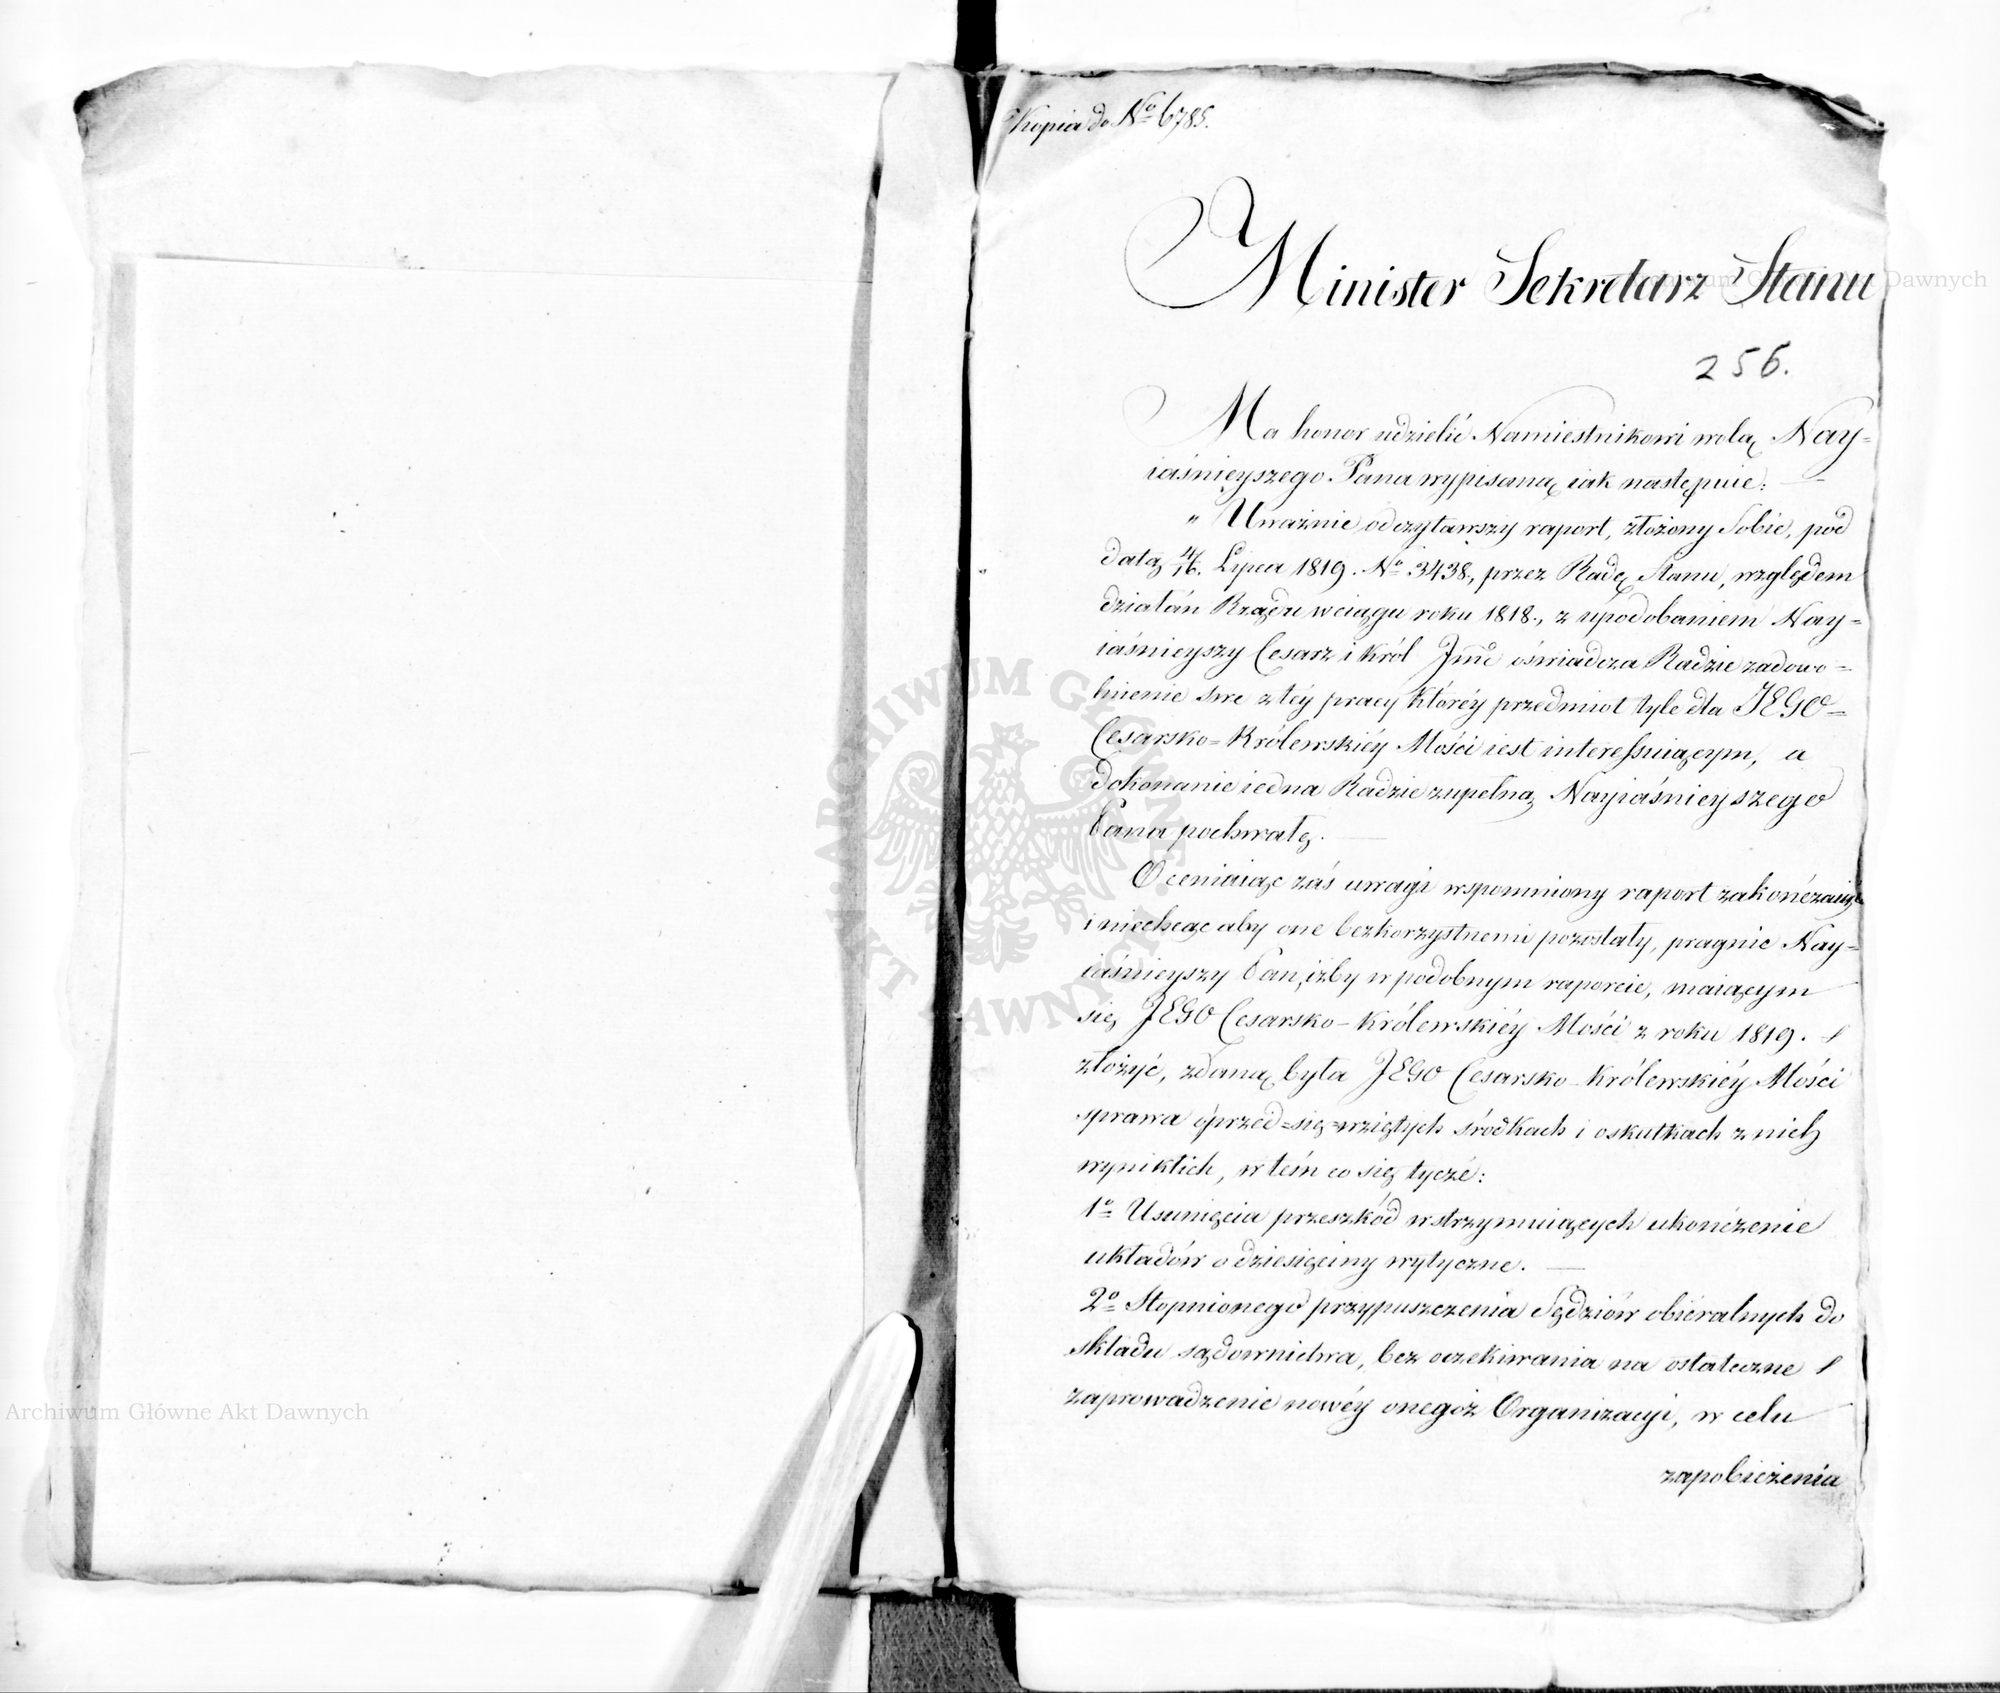 Kopia do Nº 6785.
Minister Sekretarz Stanu
256.
Ma honor udzielić Namiestnikowi wolą Nay=
iaśnieyszego Pana wypisaną iak następuie:
" Uważnie odczytawszy raport, złożony Sobie, pod
datą 4/16. Lipca 1819. Nº 3438, przez Radę Stanu, względem
działań Rządu w ciągu roku 1818., z upodobaniem Nay=
iaśnieyszy Cesarz i Król Jmć oświadcza Radzie zadowo=
lnienie swe z téy pracy któréy przedmiot tyle dla JEGO=
Cesarsko=Królewskiéy Mości iest interessuiącym, a
dokonanie iedna Radzie zupełną Nayiaśnieyszego
Pana pochwałę.
Oceniaiąc zaś uwagi wspomniony raport zakończaiące
i niechcąc aby one bezkorzystnemi pozostały, pragnie Nay=
iaśnieyszy Pan, iżby w podobnym raporcie, maiącym
się JEGO Cesarsko-Królewskiéy Mości z roku 1819.
złożyć, zdaną była JEGO Cesarsko-Królewskiéy Mości
sprawa o przed=się=wziętych środkach i o skutkach z nich
wynikłich, w tém co się tyczé:
1º Usunięcia przeszkód wstrzymuiących ukończenie
układów o dziesięciny wytyczne.
2º Stopnionego przypuszczenia Sędziów obiéralnych do
składu sądownictwa, bez oczekiwania na ostateczne
zaprowadzenie nowéy onegoż Organizacyi, w celu
zapobieżenia
Archiwum Główne Akt Dawnych